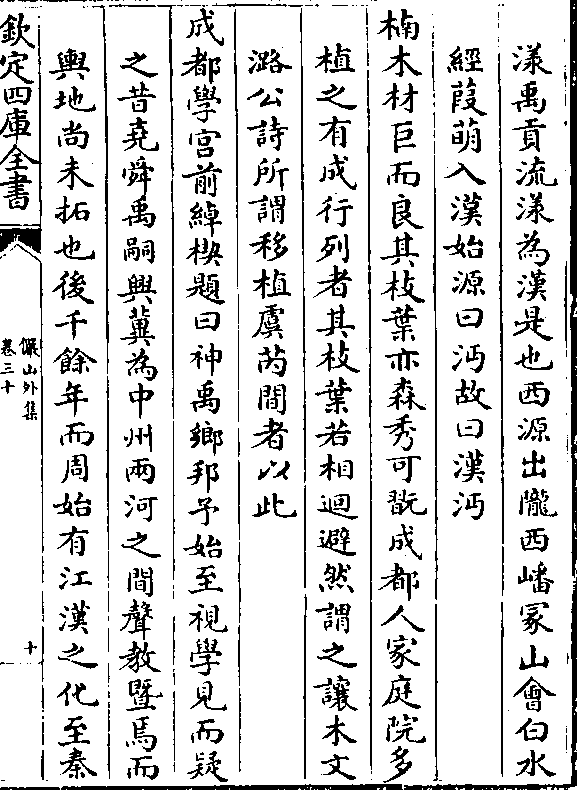 漾禹貢流漾為漢是也西源出隴西嶓冢山會白水
經葭萌入漢始源曰沔故曰漢沔
楠木材巨而良其枝葉亦森秀可翫成都人家庭院多
植之有成行列者其枝葉若相迴避然謂之讓木文
潞公詩所謂移植虞芮間者以此
成都學宫前綽楔題曰神禹鄉邦予始至視學見而疑
之昔堯舜禹嗣興冀為中州兩河之間聲教暨焉而
輿地尚未拓也後千餘年而周始有江漢之化至秦
欽定四庫全書
儼山外集
卷三十
十